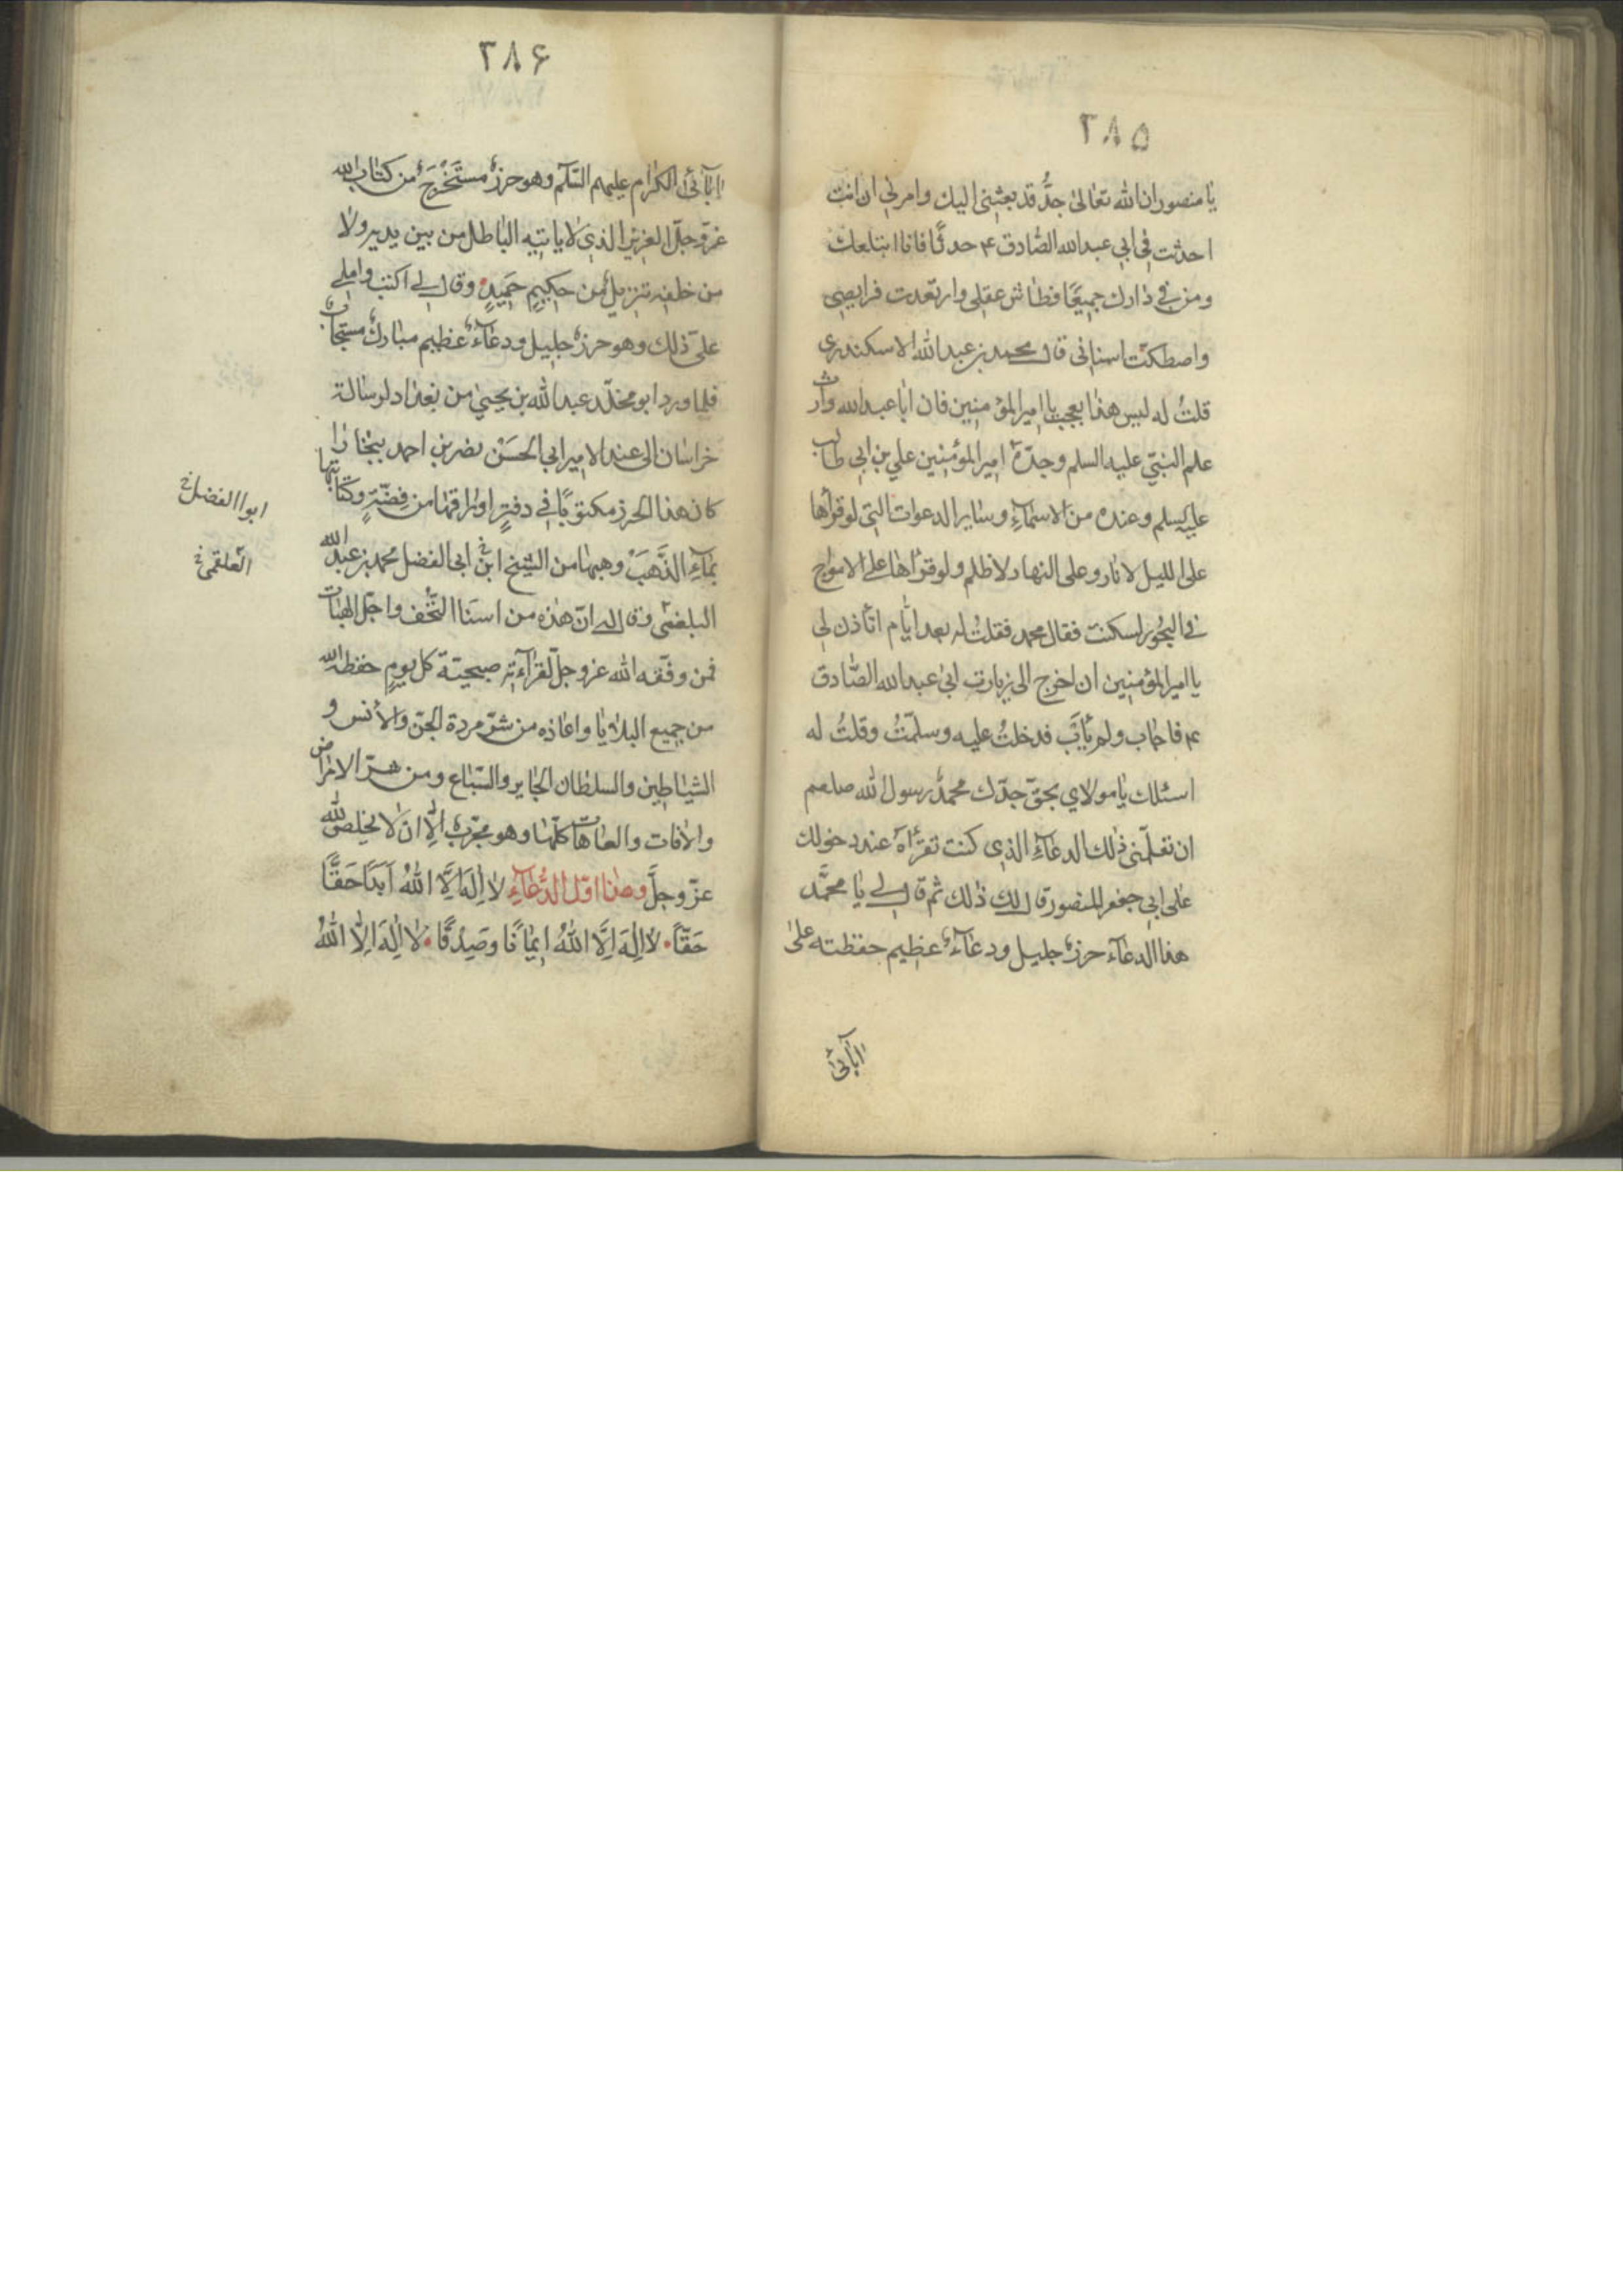 ٢٨۵
يا منصور ان الله تعالى جدُّه قد بعثنى اليك وامرنى ان انت
احدثت فى ابى عبدالله الصّادق ۴ حدثًا فانا ابتلعك
ومن فى دارك جميعًا فطاش عقلى وارتعدت فرايصى
واصطكّت اسنانى قال محمد بن عبدالله الاسكندرى
قلتُ له ليس هذا بعجب يا امير المؤمنين فان ابا عبدالله وارث
علم النبىّ عليه السلم وجدّه امير المؤمنين على بن ابى طالب
عليه السلم وعنده من الاسمآءِ وساير الدعوات التى لو قرأها
على الليل لانار وعلى النهار لاظلم ولو قرأها على الامواج
فى البحُور لسكنت فقال محمد فقلتُ له بعد ايّام اتأذن لى
يا امير المؤمنين ان اخرج الى زيارت ابى عبدالله الصّادق
۴ فاجاب ولم يأبَ فدخلتُ عليه وسلّمتُ وقلتُ له
اسئلك يا مولاي بحقّ جدّك محمّد رسول الله صلعم
ان تعلّمنى ذلك الدعآءِ الذى كنت تقرأه عند دخولك
على ابى جعفر المنصور قال لك ذلك ثم قال لى يا محمَّد
هذا الدعآء حرزٌ جليل ودعآءٌ عظيم حفظته على
اٰبآئى
٢٨۶
اٰبآئى الكرام عليهم السّلم وهو حرزٌ مستَخْرَجٌ من كتاب الله
عزّوجلّ العزيز الذى لا ياتيه الباطل من بين يديه ولا
من خلفه تنزيلٌ من حكيمٍ حميدٍ وقال لى اكتب واملى
علىّ ذلك وهو حرزٌ جليل ودعآءٌ عظيم مبارك مستجاب
فلما ورد ابو مخلّد عبدالله بن يحيى من بغداد لرسالة
خراسان الى عند الامير ابى الحسَنْ نصر بن احمد ببخارا
كان هذا الحرز مكتوبًا فى دفترٍ اوراقها من فِضّةٍ وكتابتها
بمآءِ الذَّهَبْ وهبها من الشيخ ابن ابى الفضل محمد بن عبدالله
البلغمى وقال له انّ هذه من اسنا التُّحَف واجلّ الهبات
فمن وفّقه الله عزوجلّ لقرآءته صبحيّة كل يومٍ حفظه الله
من جميع البلايا واعاذه من شرّ مردة الجنّ والأنس و
الشياطين والسلطان الجاير والسّباع ومن شرّ الامراض
والافات والعاهات كلّها وهو مجرّبٌ الّا ان لا يخلص لله
عزّوجلَّ وهذا اوّل الدُّعآءِ لا اِلٰهَ اِلَّا اللهُ اَبَدًا حَقًّا
حَقًّا لا اِلٰهَ اِلَّا اللهُ اِيمَانًا وصَدِيْقًا لا اِلٰهَ اِلّا اللهُ
ابوا الفضل خ
العلقمى خ